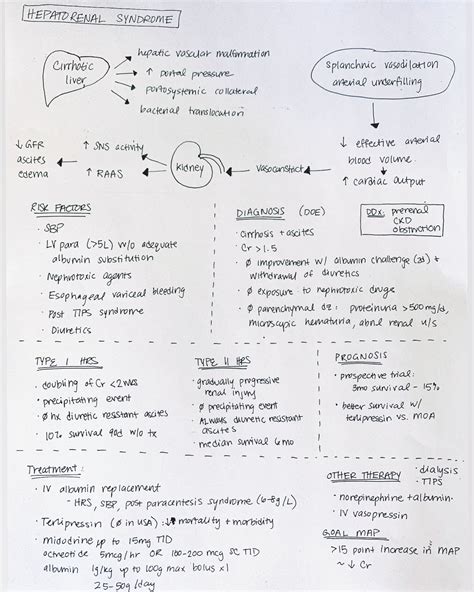 HEPATORENAL SYNDROME
Cirrhotic
liver
hepatic vascular malformation
↑ portal pressure
portosystemic collateral
bacterial translocation
Splanchnic vasodilation
arterial underfilling
↓ effective arterial
blood volume
↑ cardiac output
vasoconstrict
kidney
↑ SNS activity
↑ RAAS
↓ GFR
ascites
edema
RISK FACTORS
· SBP
· LV para (>5L) w/o adequate
albumin substitution
· Nephrotoxic agents
· Esophageal variceal bleeding
· Post TIPS syndrome
· Diuretics
DIAGNOSIS (DOE)
DDx: prerenal
CKD
obstruction
· Cirrhosis + ascites
· Cr > 1.5
· Ø improvement w/ albumin challenge (2d) +
withdrawal of diuretics
· Ø exposure to nephrotoxic drugs
· Ø parenchymal dz: proteinuria >500mg/d,
microscopic hematuria, abnl renal u/s
TYPE I HRS
· doubling of Cr <2wks
· precipitating event
· Ø hx diuretic resistant ascites
· 10% survival 90d w/o tx
TYPE II HRS
· gradually progressive
renal injury
· Ø precipitating event
· ALWAYS diuretic resistant
ascites
· median survival 6mo
PROGNOSIS
· prospective trial:
3mo survival - 15%
· better survival w/
terlipressin vs. MOA
Treatment:
· IV albumin replacement
- HRS, SBP, post paracentesis syndrome (6-8g/L)
· Terlipressin (Ø in USA): ↓ mortality + morbidity
· midodrine up to 15mg TID
octreotide 50mcg/hr OR 100-200 mcg SC TID
albumin 1g/kg up to 100g max bolus x1
25-50g/day
OTHER THERAPY
· dialysis
· TIPS
· norepinephrine + albumin
· IV vasopressin
GOAL MAP
>15 point increase in MAP
~ ↓ Cr